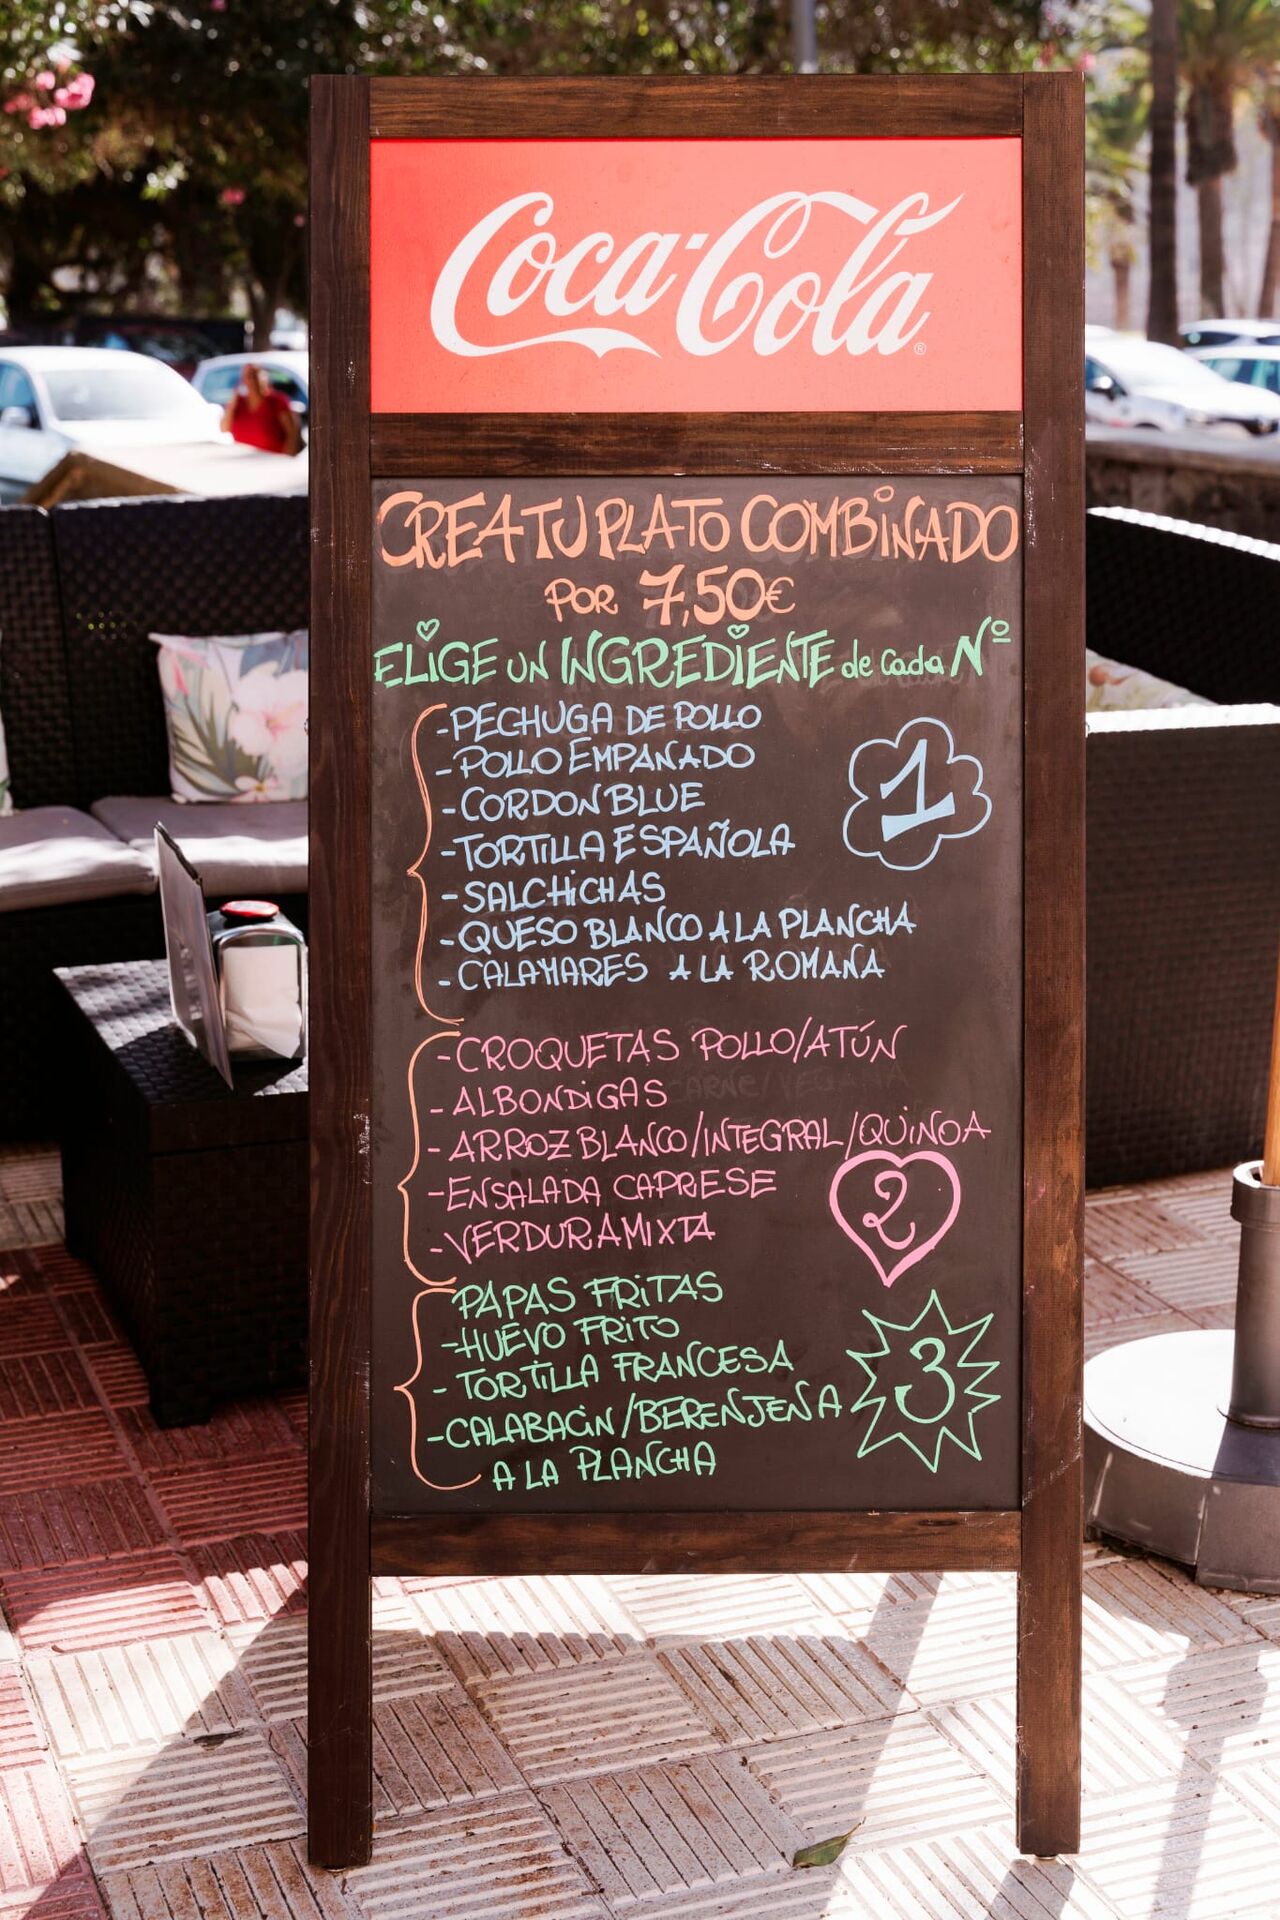 Coca-Cola
®
CREA TU PLATO COMBINADO
POR 7,50€
ELIGE UN INGREDIENTE de cada Nº
-PECHUGA DE POLLO
-POLLO EMPANADO
-CORDON BLUE
-TORTILLA ESPAÑOLA
-SALCHICHAS
-QUESO BLANCO A LA PLANCHA
-CALAMARES A LA ROMANA
1
-CROQUETAS POLLO/ATÚN
CARNE/VEGANA
-ALBONDIGAS
-ARROZ BLANCO/INTEGRAL/QUINOA
-ENSALADA CAPRESE
-VERDURA MIXTA
2
PAPAS FRITAS
-HUEVO FRITO
-TORTILLA FRANCESA
-CALABACIN/BERENJENA
A LA PLANCHA
3